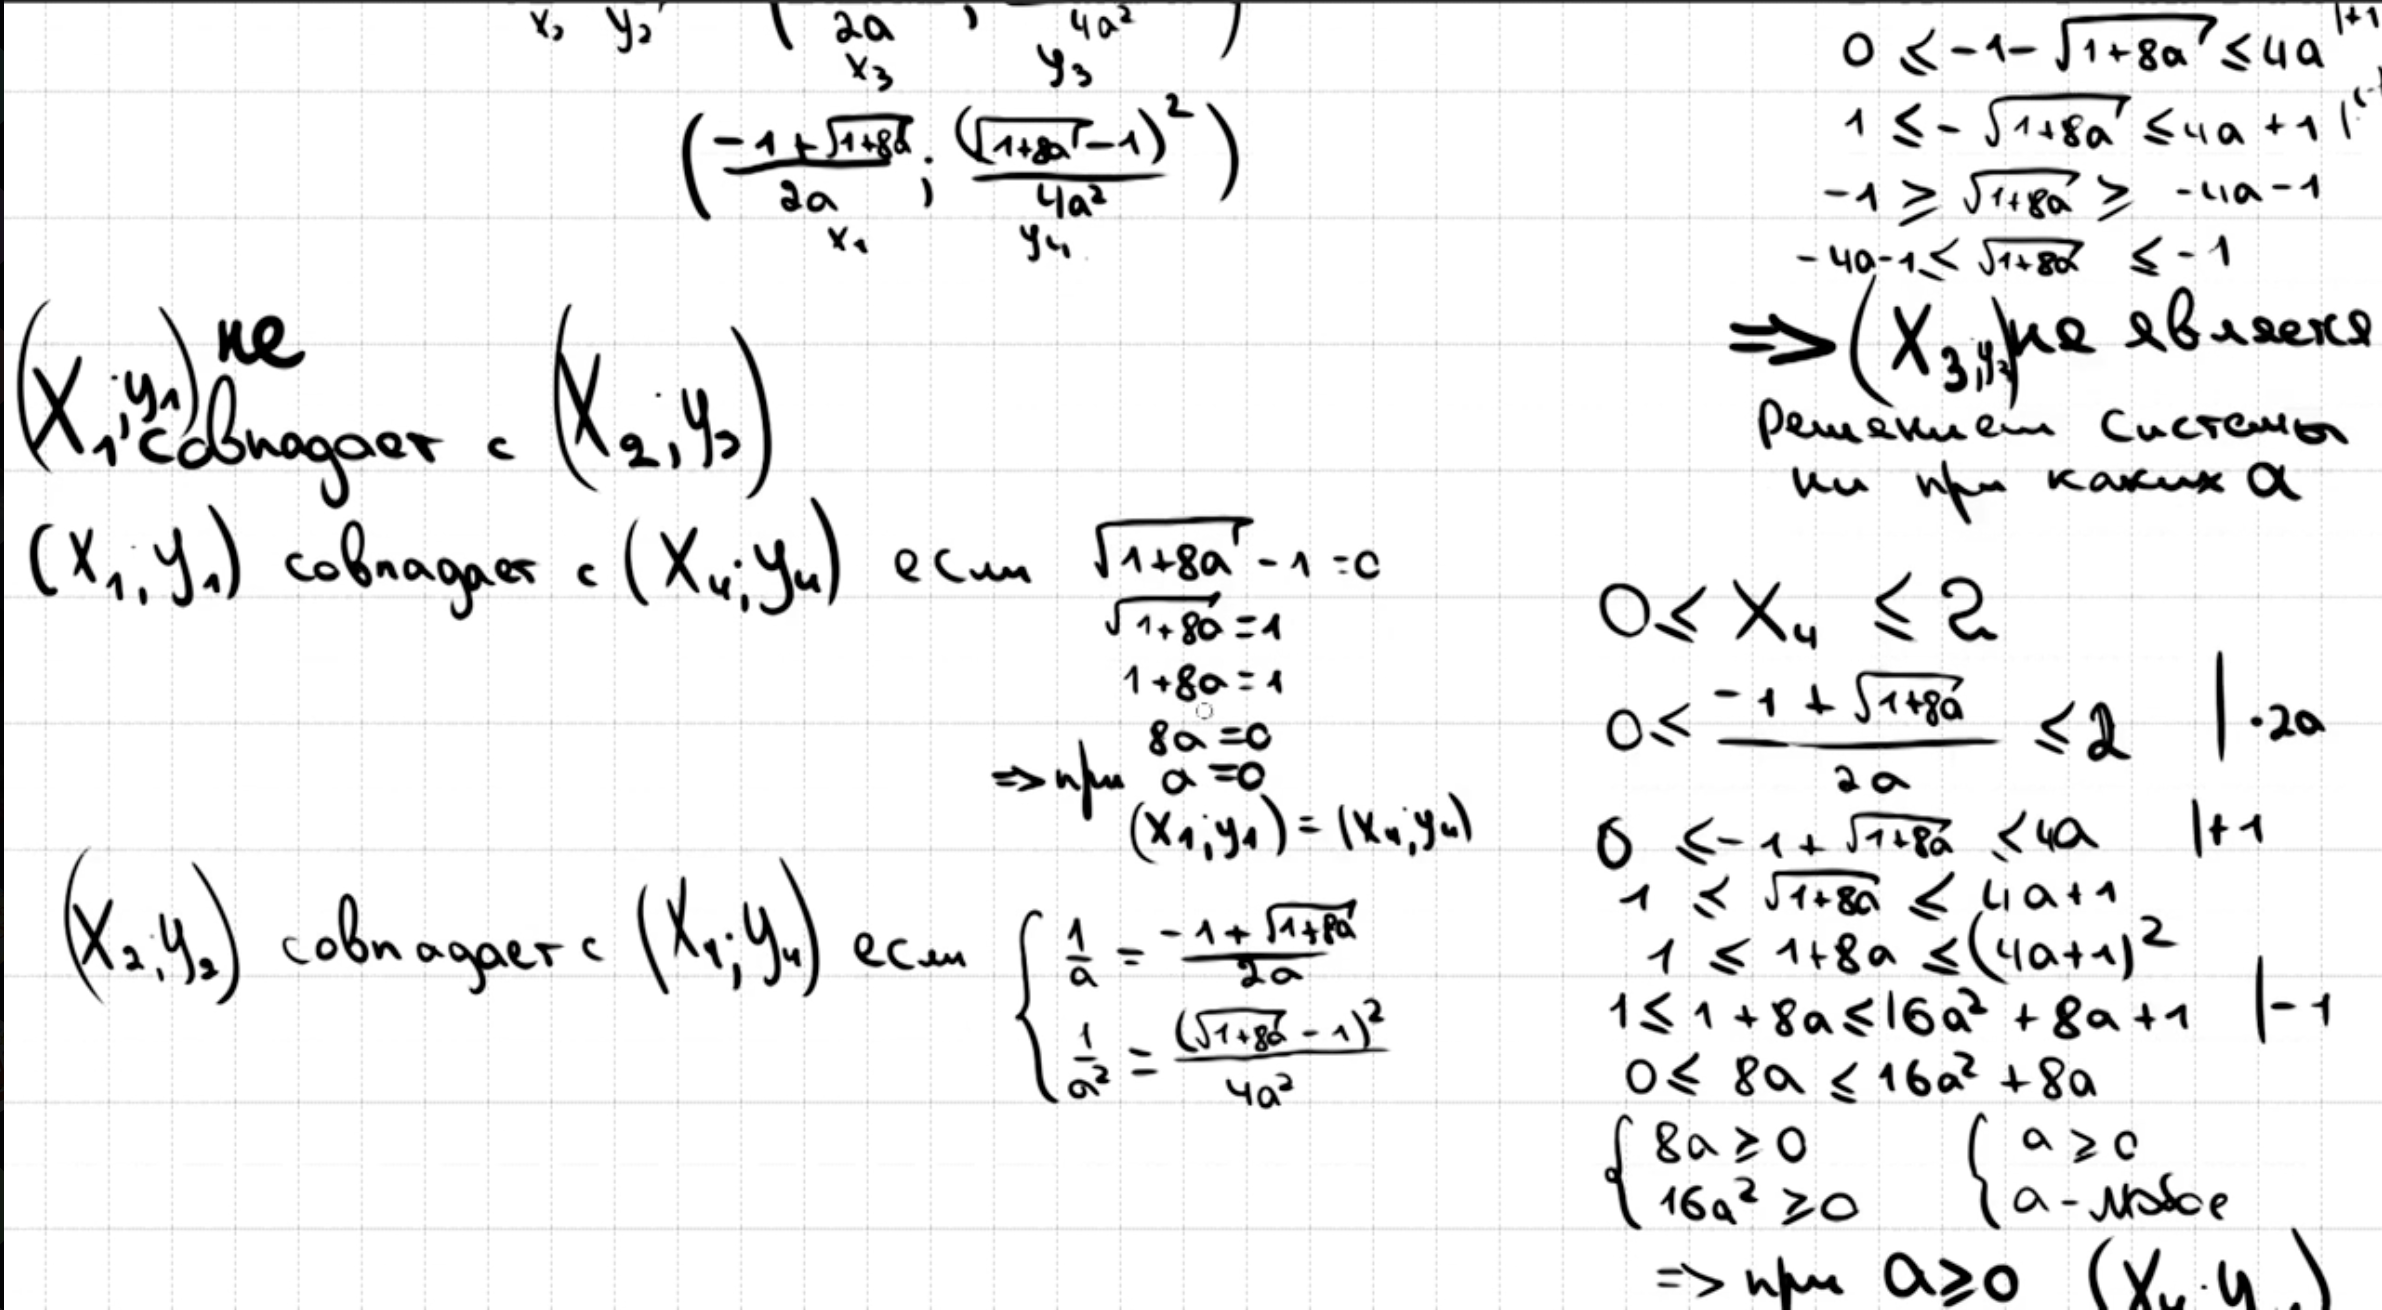 x₂ y₂ ( 2a ; 4a² )
x₃ y₃
( (-1+√(1+8a))/(2a) ; (√(1+8a)-1)²/(4a²) )
x₁ y₄
(x₁;y₁) не совпадает с (x₂;y₂)
(x₁;y₁) совпадает с (x₄;y₄) если √(1+8a) - 1 = 0
√(1+8a) = 1
1+8a = 1
8a = 0
=> при a = 0
(x₁;y₁) = (x₄;y₄)
(x₂;y₂) совпадает с (x₄;y₄) если { 1/a = (-1+√(1+8a))/(2a)
1/a² = (√(1+8a) - 1)²/(4a²)
0 ≤ -1-√(1+8a) ≤ 4a |+1
1 ≤ -√(1+8a) ≤ 4a+1 |(-
-1 ≥ √(1+8a) ≥ -4a-1
-4a-1 ≤ √(1+8a) ≤ -1
=> (x₃;y₃) не является
решением системы
ни при каких a
0 ≤ x₄ ≤ 2
0 ≤ (-1+√(1+8a))/(2a) ≤ 2 | ·2a
0 ≤ -1+√(1+8a) ≤ 4a |+1
1 ≤ √(1+8a) ≤ 4a+1
1 ≤ 1+8a ≤ (4a+1)²
1 ≤ 1+8a ≤ 16a²+8a+1 |-1
0 ≤ 8a ≤ 16a²+8a
{ 8a ≥ 0 { a ≥ 0
16a² ≥ 0 a - любое
=> при a ≥ 0 (x₄;y₄)